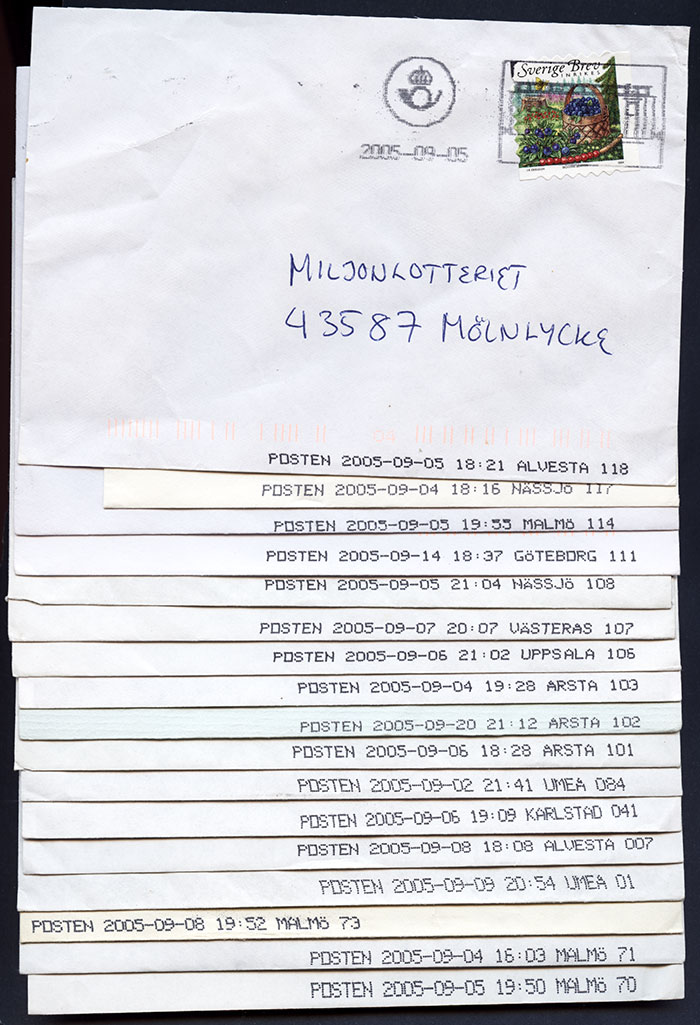 Sverige Brev
INRIKES
2005-09-05
MILJONLOTTERIET
43587 MÖLNLYCKE
04
POSTEN 2005-09-05 18:21 ALVESTA 118
POSTEN 2005-09-04 18:16 NÄSSJÖ 117
POSTEN 2005-09-05 19:55 MALMÖ 114
POSTEN 2005-09-14 18:37 GÖTEBORG 111
POSTEN 2005-09-05 21:04 NÄSSJÖ 108
POSTEN 2005-09-07 20:07 VÄSTERAS 107
POSTEN 2005-09-06 21:02 UPPSALA 106
POSTEN 2005-09-04 19:28 ARSTA 103
POSTEN 2005-09-20 21:12 ARSTA 102
POSTEN 2005-09-06 18:28 ARSTA 101
POSTEN 2005-09-02 21:41 UMEA 084
POSTEN 2005-09-06 19:09 KARLSTAD 041
POSTEN 2005-09-08 18:08 ALVESTA 007
POSTEN 2005-09-09 20:54 UMEA 01
POSTEN 2005-09-08 19:52 MALMÖ 73
POSTEN 2005-09-04 16:03 MALMÖ 71
POSTEN 2005-09-05 19:50 MALMÖ 70